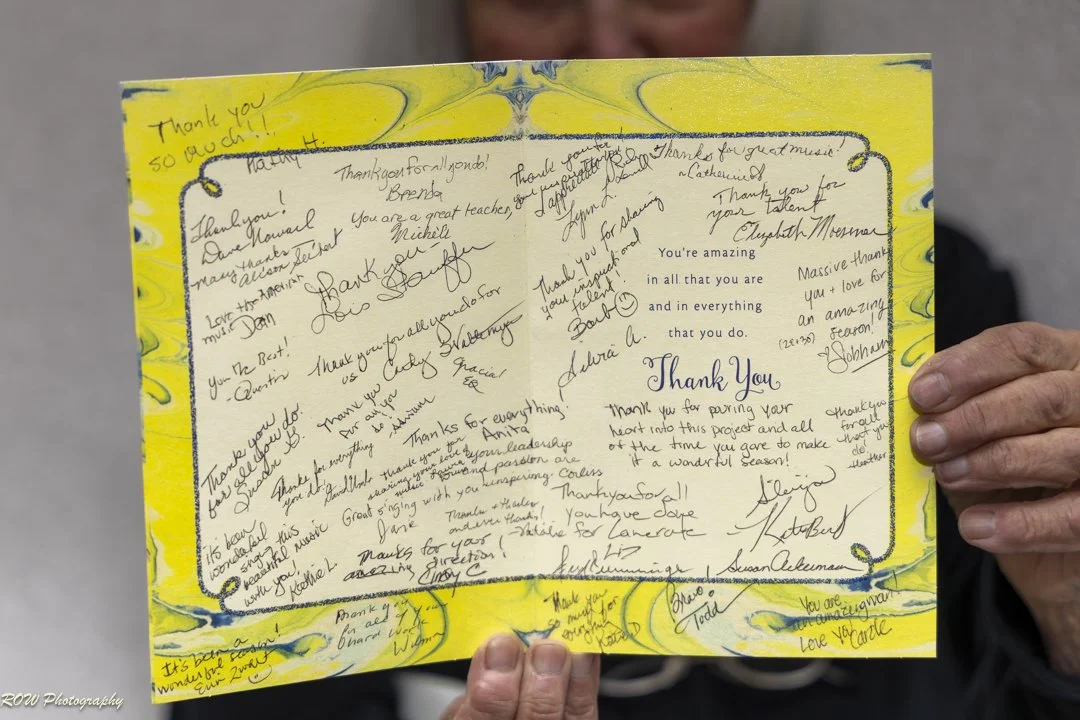 Thank you
so much!!
Kathy H.
Thank you for all you do!
Brenda
You are a great teacher,
Michele
Thank you!
Dave Howard
many thanks
Alison Seichert
Thank you
Lois Stauffer
Love the American
music Dean
you the Best!
-Quentin
Thank you for all you do for
us Cindy
Gracias!
Thank you
for all you
do!
Thank you
for all you do.
Thanks for everything
you do!
Thanks for everything.
Anita
Thank you for
sharing your love of
music
your leadership
and passion are
inspiring. Corliss
Great singing with you
Diane
it's been
wonderful
singing this
beautiful music
with you,
Kathie L.
Thanks for your
amazing direction!
Cindy C
Thank you for
your
I appreciate you
Lynn L.
Thanks for great music!
~Catherine
Thank you for
your talent
Elizabeth Moesmer
Thank you for sharing
your inspirational
talent!
Barb
Silvia A.
You're amazing
in all that you are
and in everything
that you do.
Thank You
Massive thank
you + love for
an amazing
season!
Siobhan
Thank you for puring your
heart into this project and all
of the time you gave to make
it a wondrful season!
Thank you
for all
that you
do!
Heather
Thank you for all
you have done
-Natalie for Lanerate
Liz
Cummings
Susan Ackerman
Bravo!
Todd
It's been a
wonderful season!
Thank you
for all of your
hard work
Thank you
so much for
everything
You are
an amazing
Love you
ROW Photography